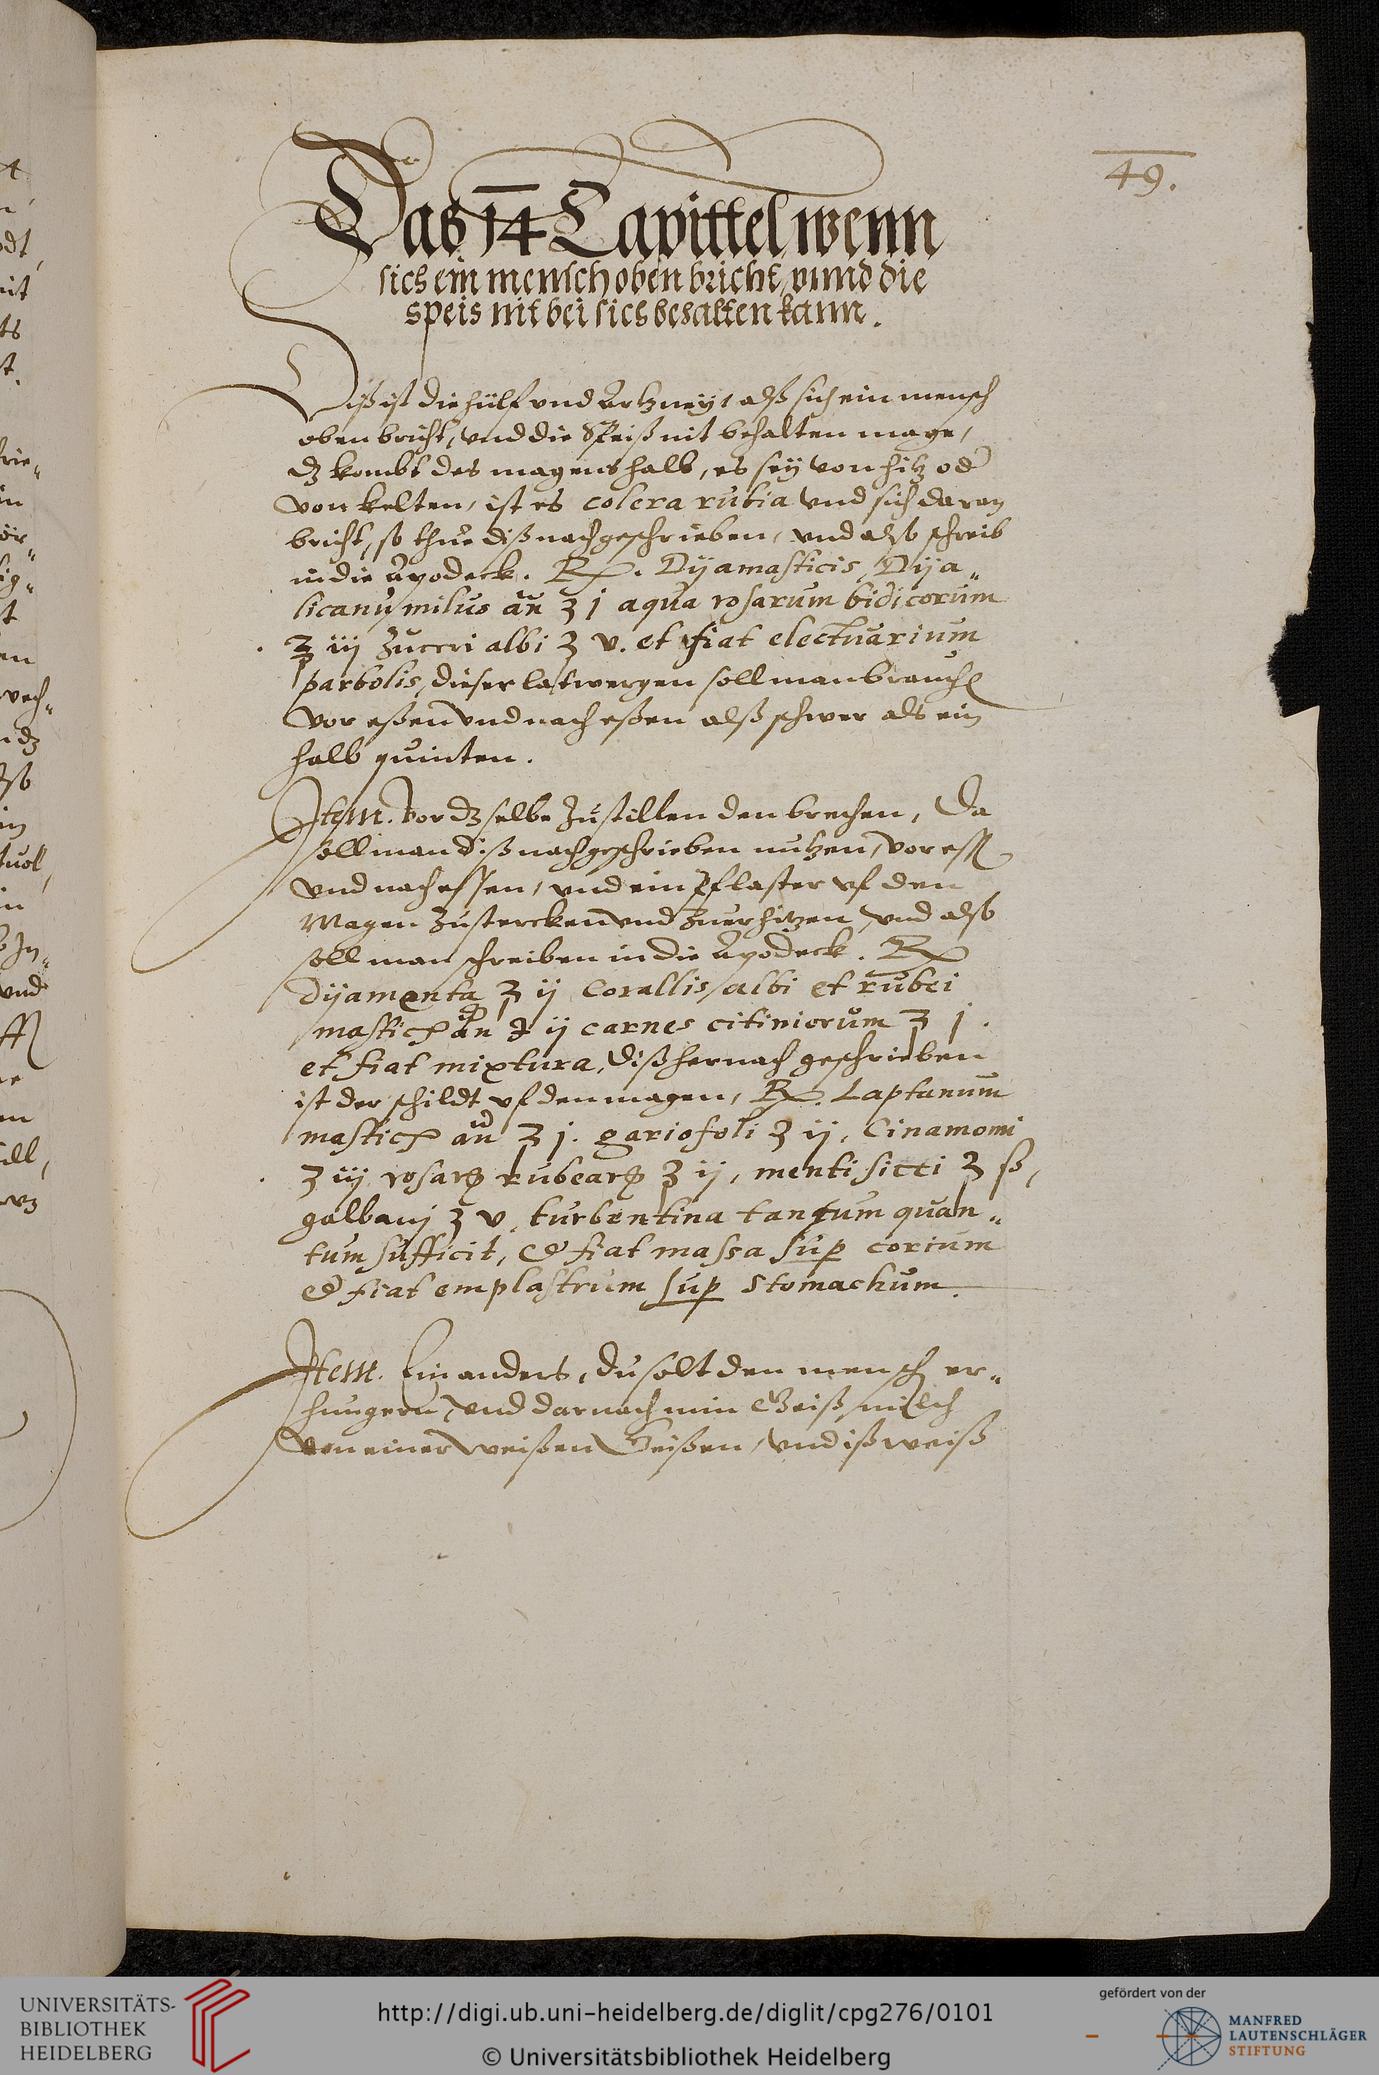 49.
Das 14 Capittel wenn
sich ein mensch oben bricht, vnnd die
speis nit bei sich behalten kann.
Diß ist die hülf vnd Artzney, alß sich ein mensch
oben bricht, vnd die Speiß nit behalten mage,
dz kombt des magens halb, es sey von hitz oder
von kelten, ist es colera rubia vnd sich daran
bricht, so thue diß nachgeschrieben, vnd also schreib
in die Apodeck. Rp. Dyamasticis, Dija„
licanij milus an ʒ j aqua rosarum bidicorum
ʒ iij Zuccri albi ʒ v. et fiat electuarium
parbolis, dieser latwergen soll man brauchen
vor eßen vnd nach eßen alß schwer als ein
halb quinten.
Item. Vor dz selbe zustillen den brechen, Da
soll man diß nachgeschrieben nutzen, vor essen
vnd nach essen, vnd ein Pflaster vf den
Magen zustercken vnd zuerhitzen, vnd also
soll man schreiben in die Apodeck. Rp
Dijamenta ʒ ij Corallis albi et rubei
an ij carnes citiniorum ʒ j.
et fiat mixtura, diß hernach geschrieben
ist der schildt vf den magen, Rp. Laptanum
an ʒ j. gariofoli ʒ ij, Cinamomi
ʒ iij ʒ ij, menti sicci ʒ ß,
galbanj ʒ v, turbentina tantum quan„
tum sufficit, et fiat massa sup corium
et fiat emplastrum sup Stomachum.
Item. Ein anders, du solt den mensch er„
hungern, vnd darnach nim Geiß milch
von einer weißen Geißen, vnd iß weiß
UNIVERSITÄTS-
BIBLIOTHEK
HEIDELBERG
http://digi.ub.uni-heidelberg.de/diglit/cpg276/0101
© Universitätsbibliothek Heidelberg
gefördert von der
MANFRED
LAUTENSCHLÄGER
STIFTUNG